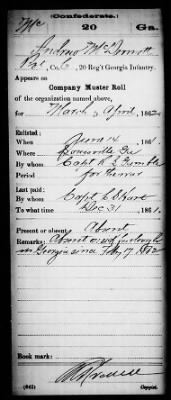 Mc
Confederate.
20 Ga.
Andrew McDermott
Pvt, Co. C, 20 Reg't Georgia Infantry.
Appears on
Company Muster Roll
of the organization named above,
for March & April, 1862.
Enlisted:
When June 14, 1861.
Where Louisville Ga
By whom Capt R. G. Gamble
Period for the war
Last paid:
By whom Capt
To what time Dec 31, 1861.
Present or absent Absent
Remarks: Absent on furlough
in Georgia since Feby 17 1862
Book mark:
(642)
Copyist.